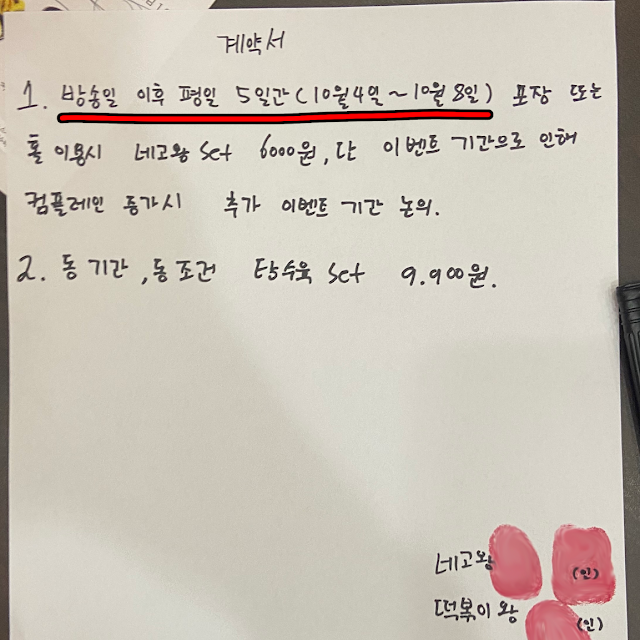 계약서
1. 방송일 이후 평일 5일간(10월4일~10월8일) 포장 또는
홀 이용시 네고왕 set 6000원, 단 이벤트 기간으로 인해
컴플레인 증가시 추가 이벤트 기간 논의.
2. 동기간, 동조건 탕수육 set 9.900원.
네고왕 (인)
떡볶이왕 (인)